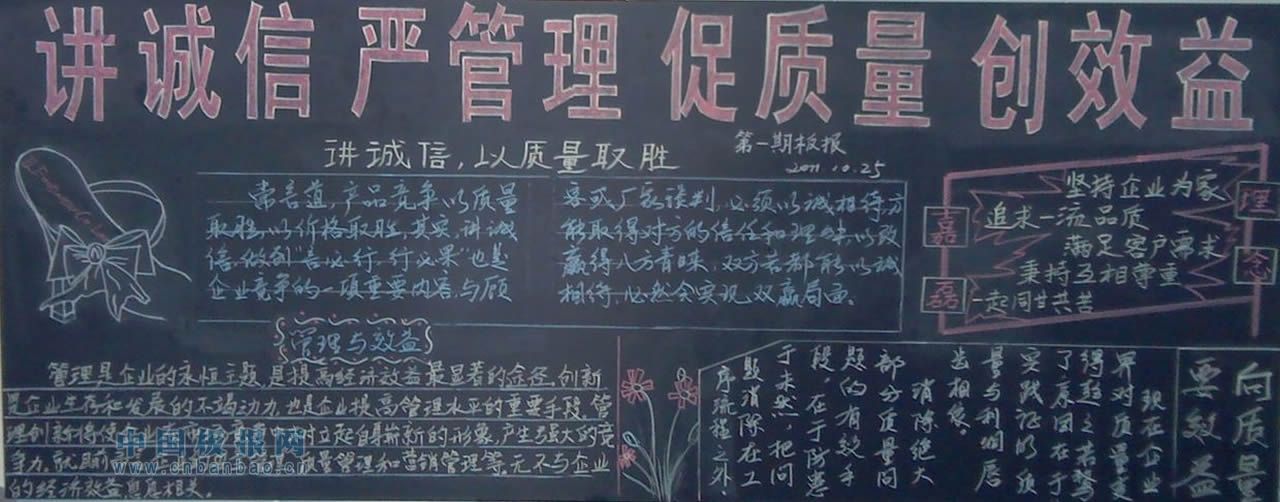 讲诚信 严管理 促质量 创效益
讲诚信,以质量取胜
第一期板报
2011.10.25
常言道,产品竞争以质量
取胜,以价格取胜,其实,讲诚
信,做到“言必行,行必果”也是
企业竞争的一项重要内容,与顾
客或厂家谈判,必须以诚相待方
能取得对方的信任和理解,以致
赢得八方青睐,双方若都能以诚
相待,必然会实现双赢局面。
嘉
磊
理
念
坚持企业为家
追求一流品质
满足客户需求
秉持互相尊重
一起同甘共苦
管理与效益
管理是企业的永恒主题,是提高经济效益最显著的途径,创新
是企业生存和发展的不竭动力,也是企业提高管理水平的重要手段,管
理创新将使企业 树立起自身崭新的形象,产生强大的竞
争力。就目前 质量管理和营销管理等,无不与企业
的经济效益息息相关。
向质量
要效益
现在企业
界对质量变
得趋之若鹜
了,原因在于
实践证明质
量与利润唇
齿相依
消除绝大
部分质量问
题的有效手
段,在于防患
于未然,把问
题消除在工
序流程之外,
中国板报网
www.cnbanbao.cn